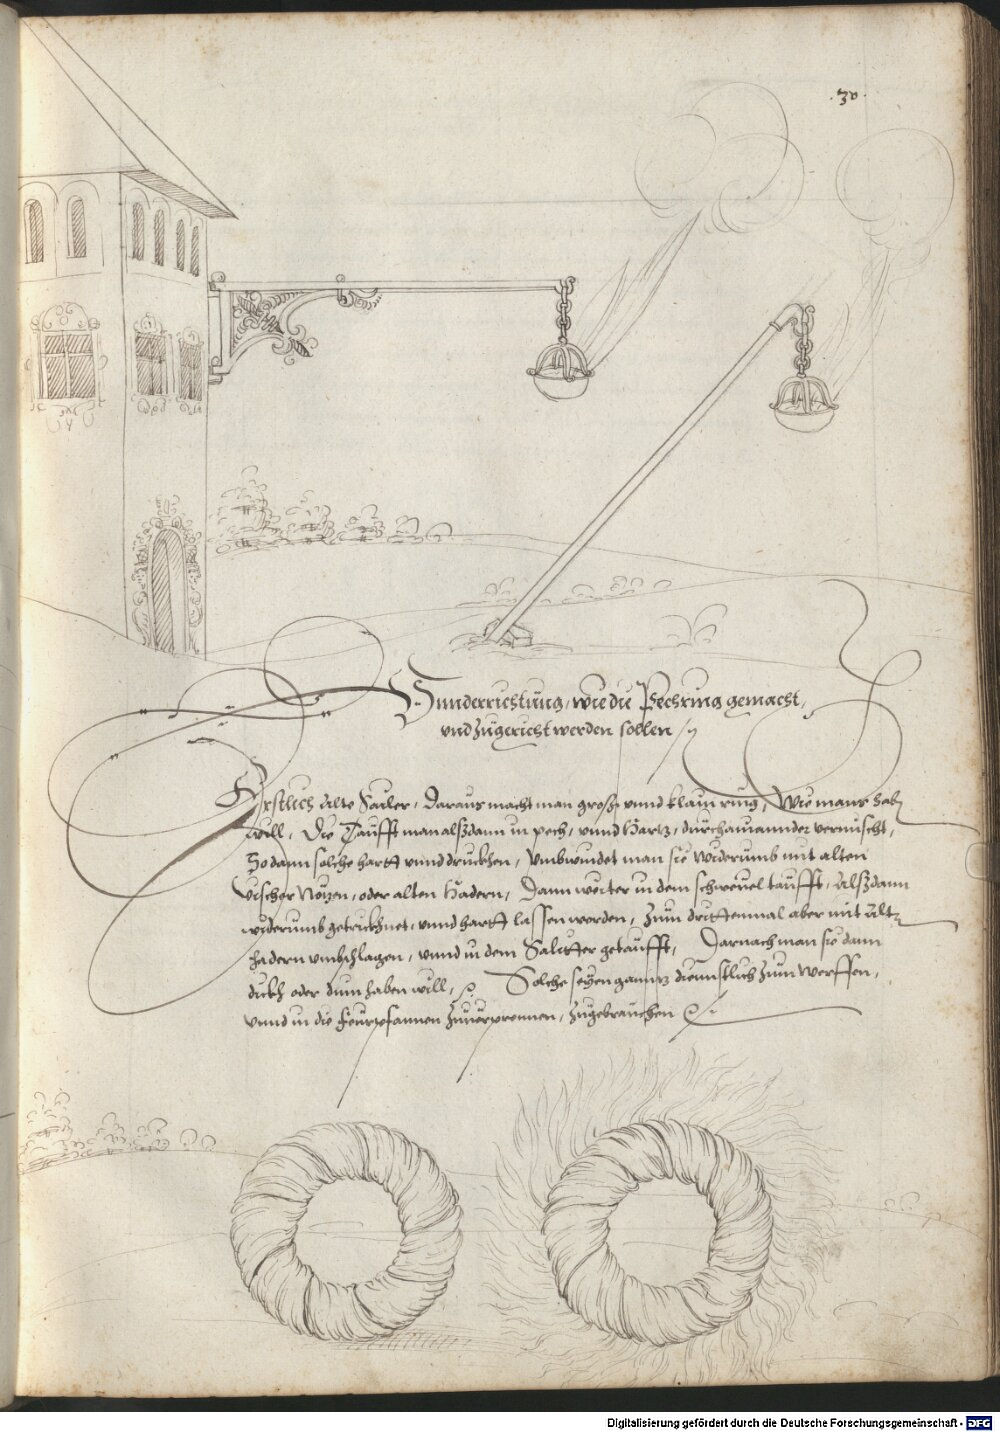 .30.
Vunderrichtung, wie die Pechring gemacht,
vnd zůgericht werden sollen
Erstlich Alte Sailer, Daraus macht man groß vnnd klain ring, Wie mans hab
will, Die Taufft man alßdann in pech, vnnd Hartz, durchainannder vermischt,
So dann solche hartt vnnd druckhen, Vmbwindet man sie widerumb mit alten
Vischer Nötzen, oder alten Hadern, Dann weiter in dem schwevel taufft, Alßdann
widerumb getrickhnet, vnnd hartt lassen werden, Zum drittenmal aber mit Alt
hadern vmbschlagen, vnnd in dem Salitter getaufft, Darnach man sie dann
dickh oder dinn haben will, Solche seyen ganntz diennstlich zum werffen,
vnnd in die feurpfannen zuuerprennen, zůgebrauchen
Digitalisierung gefördert durch die Deutsche Forschungsgemeinschaft - DFG